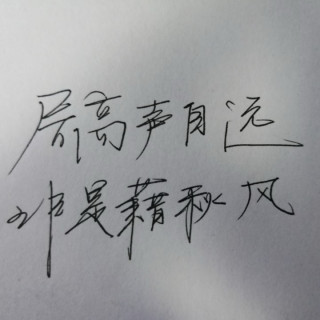 居高声自远
非是藉秋风